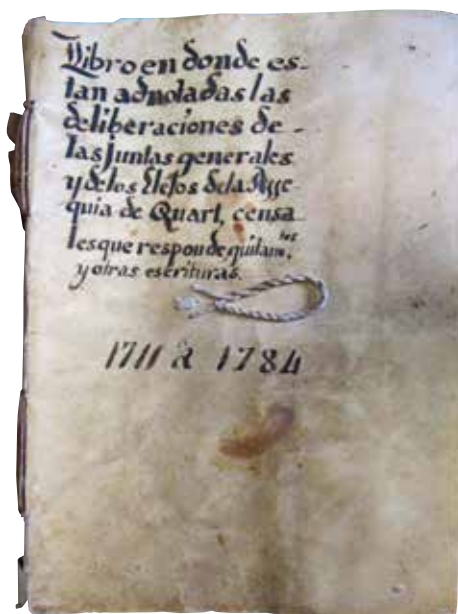 Libro en donde es-
tan adnotadas las
deliberaciones de-
las juntas generales
y de los Eletos de la Asse
quia de Quart, censa
les que responde quitam.tos
y otras escrituras.
1711 a 1784